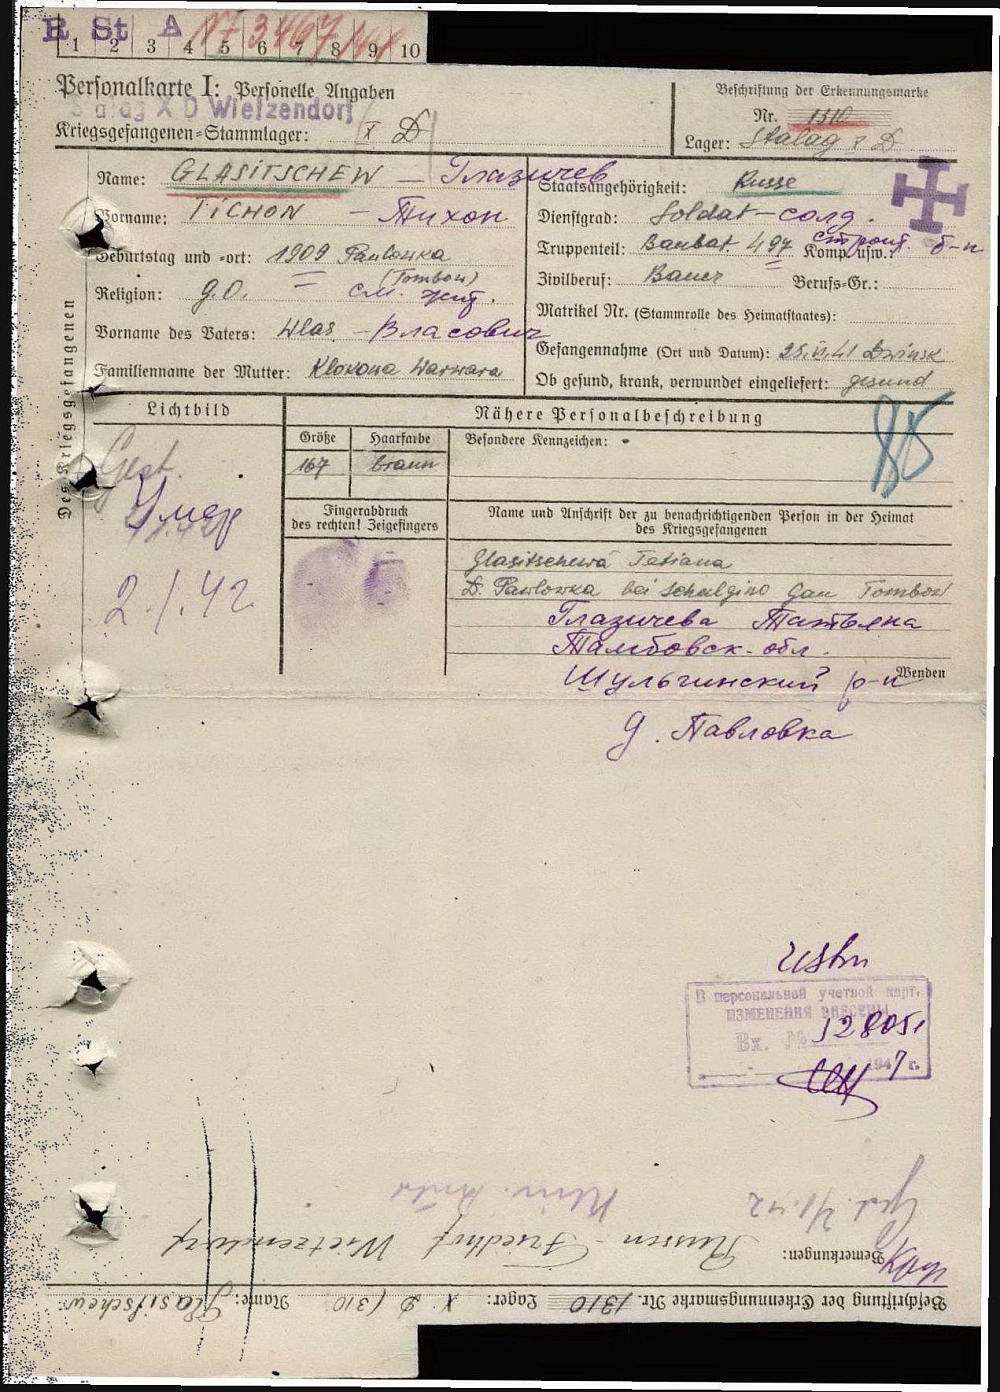 R St A № 73467
1 2 3 4 5 6 7 8 9 10
Personalkarte I: Personelle Angaben
Stalag X D Wietzendorf
Kriegsgefangenen=Stammlager: X D
Beschriftung der Erkennungsmarke
Nr. 1310
Lager: Stalag X D
Des Kriegsgefangenen
Name: GLASITSCHEW — Глазичев
Vorname: TICHON — Тихон
Geburtstag und =ort: 1909 Pawlowka
(Tombow)
Religion: g.O. см. жит.
Vorname des Vaters: Wlas — Власович
Familienname der Mutter: Klokowa Warwara
Staatsangehörigkeit: Russe
Dienstgrad: Soldat — солд.
Truppenteil: Baubat 497 Komp. usw.: строит. б-н
Zivilberuf: Bauer Berufs=Gr.:
Matrikel Nr. (Stammrolle des Heimatstaates):
Gefangennahme (Ort und Datum): 25.VI.41 Dwinsk
Ob gesund, krank, verwundet eingeliefert: gesund
Lichtbild
Gest.
Умер
2.1.42
Nähere Personalbeschreibung
Größe Haarfarbe Besondere Kennzeichen:
167 braun
Fingerabdruck
des rechten! Zeigefingers
Name und Anschrift der zu benachrichtigenden Person in der Heimat
des Kriegsgefangenen
Glasitschewa Tatiana
D. Pawlowka bei Schulgino Gau Tombow
Глазичева Татьяна
Тамбовск. обл.
Шульгинский р-н
Wenden
д. Павловка
В персональной учетной карт.
ИЗМЕНЕНИЯ ВНЕСЕНЫ
Вх. № 128051
1947 г.
Bemerkungen: Gest. 2/1.42
Russen-Friedhof Wietzendorf
Beschriftung der Erkennungsmarke Nr. 1310 Lager: X D (310 Name: Glasitschew